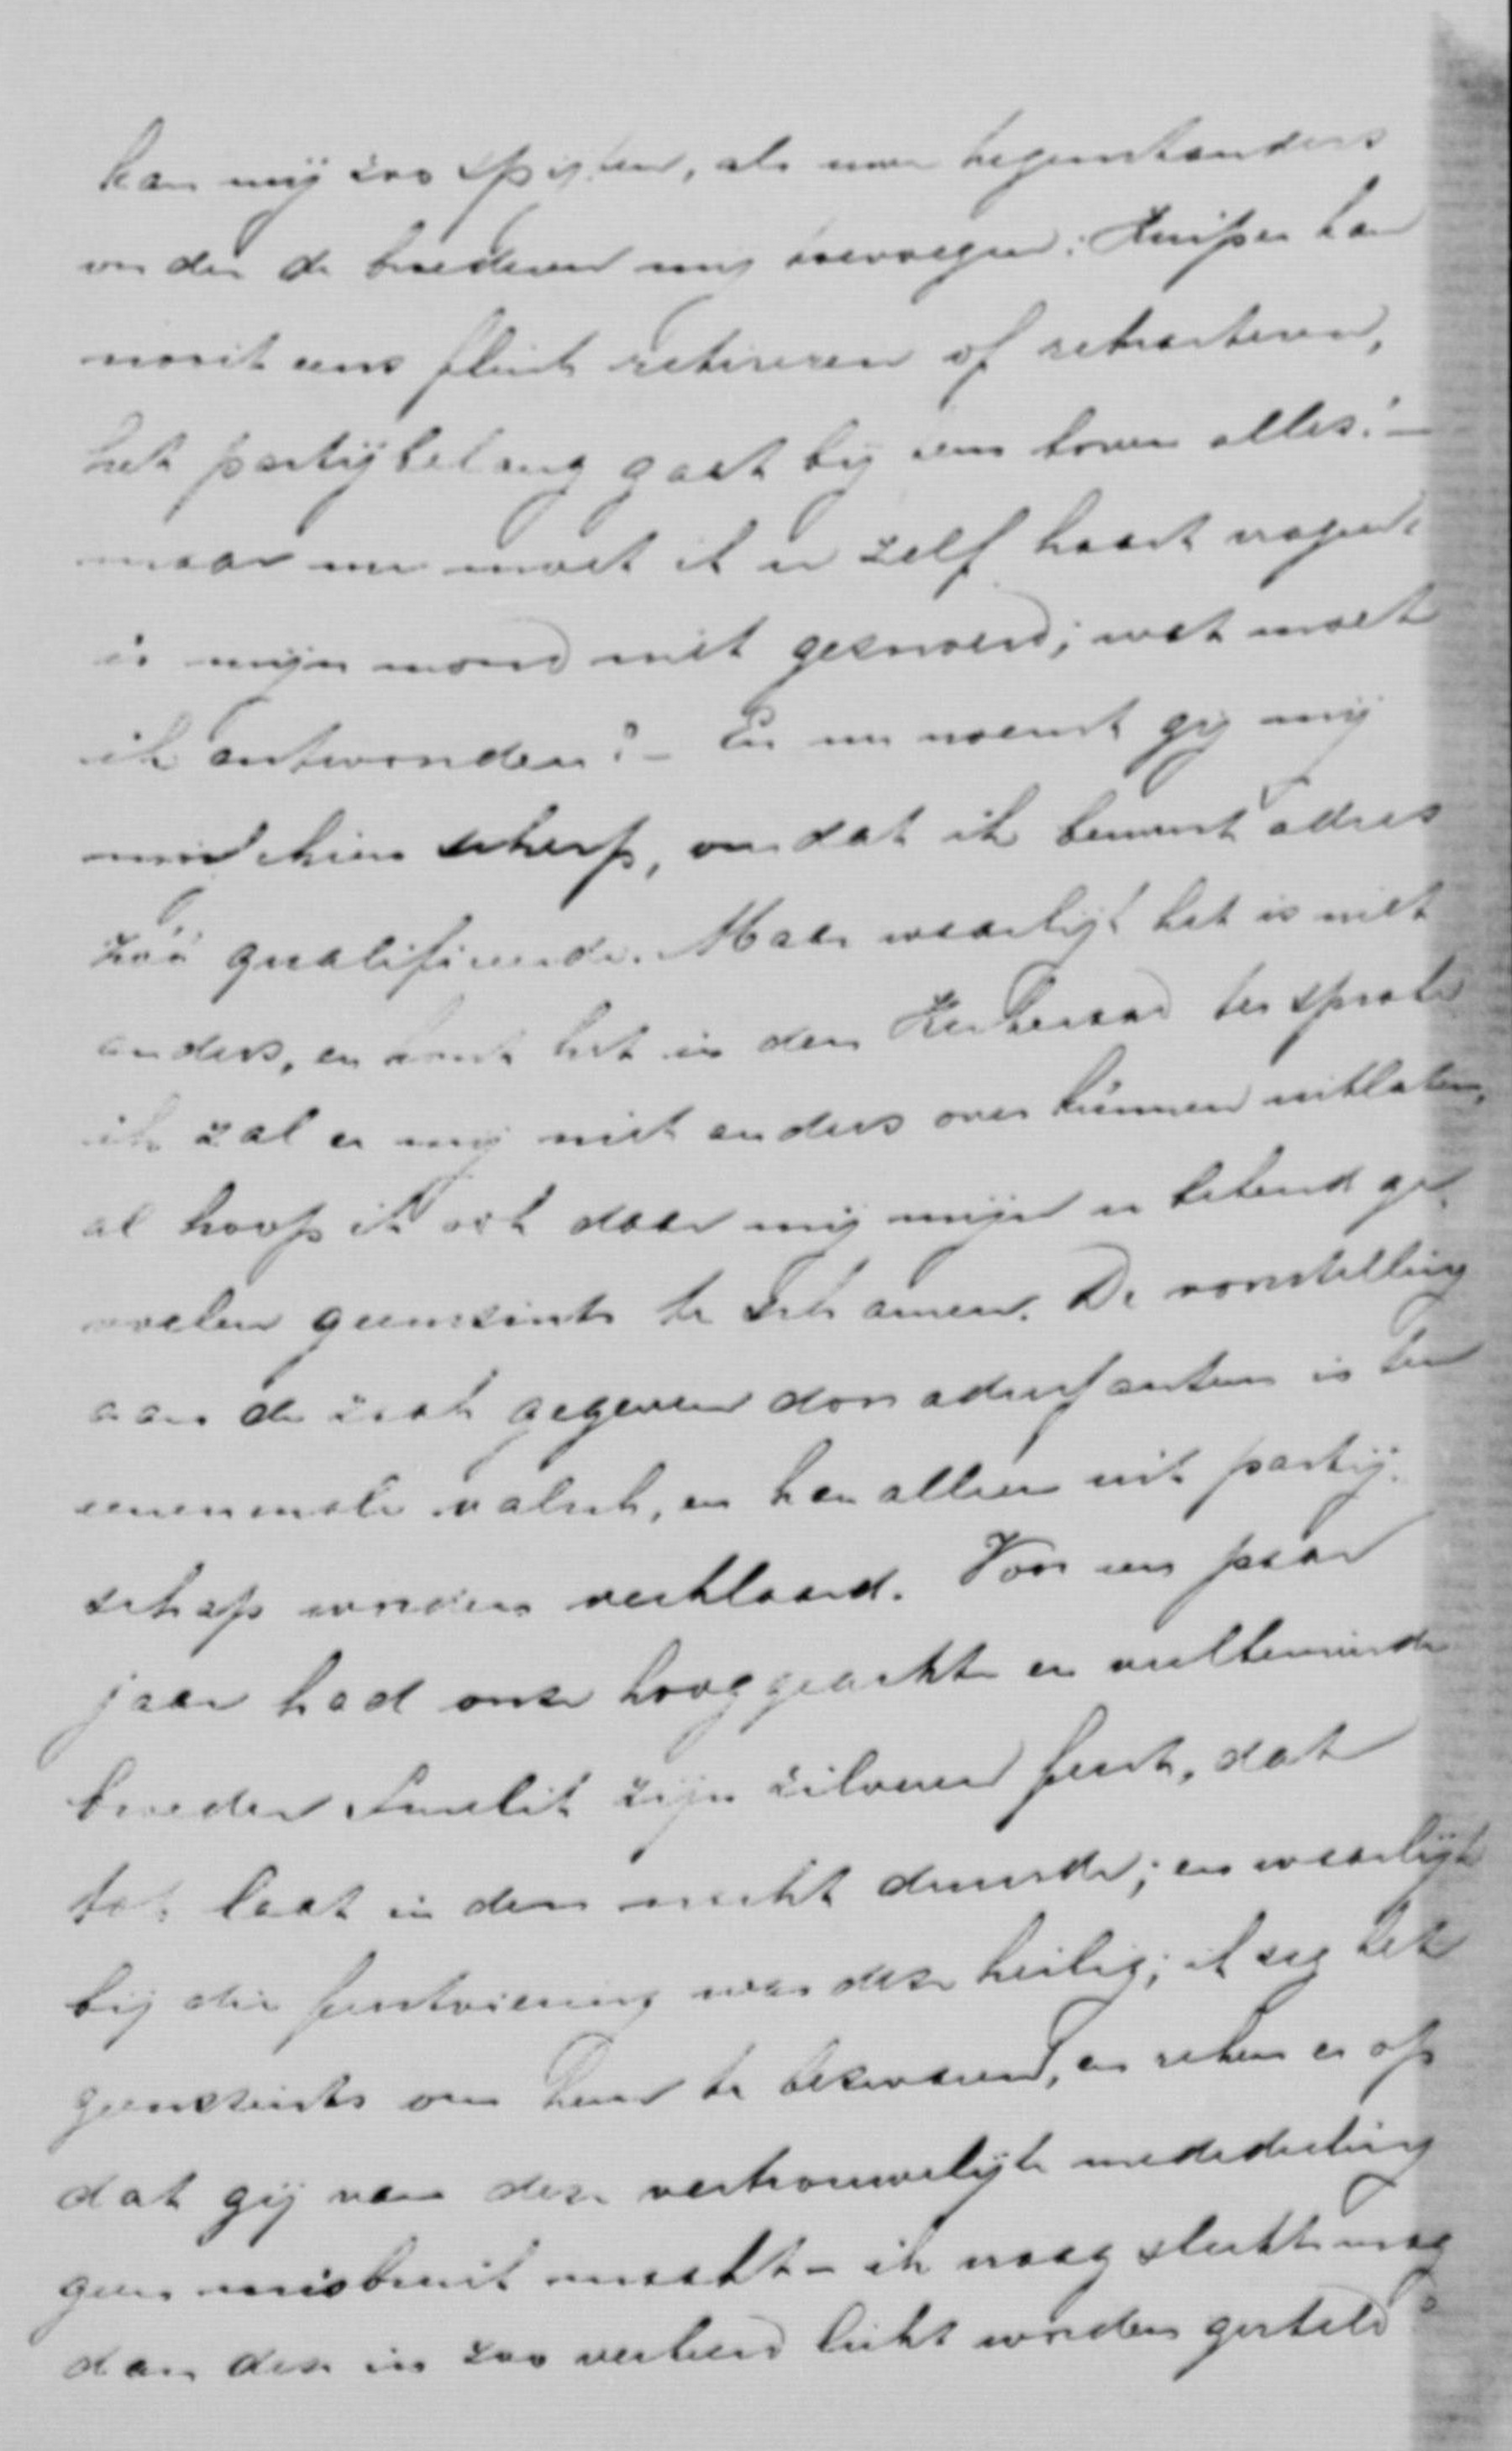 kan mij zoo spijten, als uwe tegenstanders
onder de broederen mij toevoegen: Kuiper kan
nooit eens flink retireren of retracteren,
het partijbelang gaat bij hem boven alles! –
maar nu moet ik u zelf haast vragen:
is mijn mond niet gesnoerd; wat moet
ik antwoorden? – En nu noemt gij mij
misschien scherp, omdat ik bewust adres
zóó qualificeerde. Maar waarlijk het is niet
anders, en komt het in den Kerkeraad ter sprake
ik zal er mij niet anders over kunnen uitlaten,
al hoop ik ook daar mij mijn u bekend ge-
voelen geenszins te schamen. De voorstelling
aan de zaak gegeven door adressanten is ten
eenenmale valsch, en kan alleen uit partij-
schap worden verklaard. Voor een paar
jaar had onze hooggeachte en veelbeminde
broeder zijn zilveren feest, dat
tot laat in den nacht duurde; en waarlijk
bij die feestviering was deze heilig; ik zeg dit
geenszins om hem te bezwaren, en reken er op
dat gij van deze vertrouwelijke mededeeling
geen misbruik maakt – ik vraag slechts mag
dan deze in zoo verkeerd licht worden gesteld